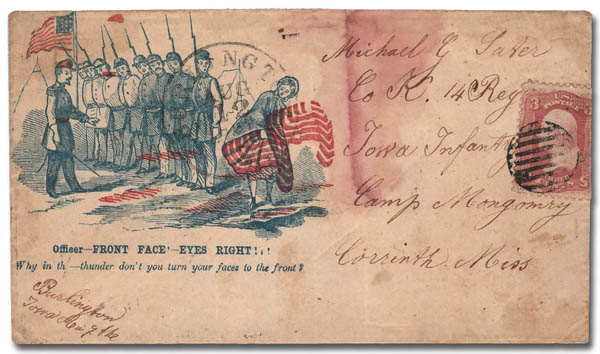 Michael G Sater
Co K. 14 Reg
Iowa Infant
Camp Mongomry
Corrinth Miss
3
U.S.
POSTAGE
NGT
Officer—FRONT FACE!—EYES RIGHT!!!
Why in th—thunder don't you turn your faces to the front?
Burlington
Iowa